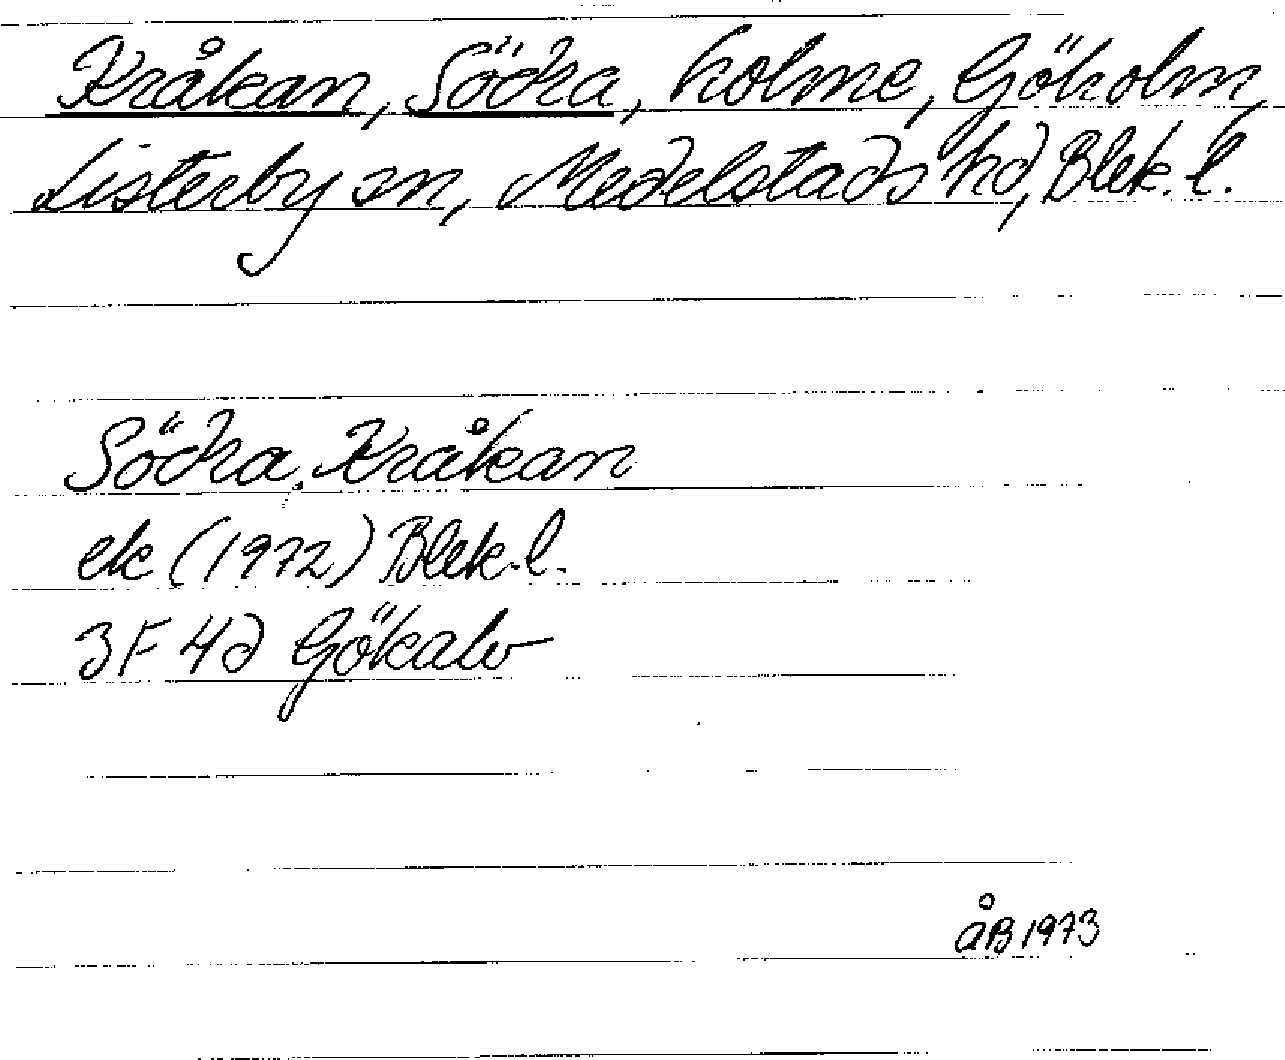 Kråkan, Södra, holme, Göholm,
Listerby sn, Medelstads hd, Blek. l.
Södra Kråkan
ek (1972) Blek. l.
3F 4d Gökalv
åB 1973